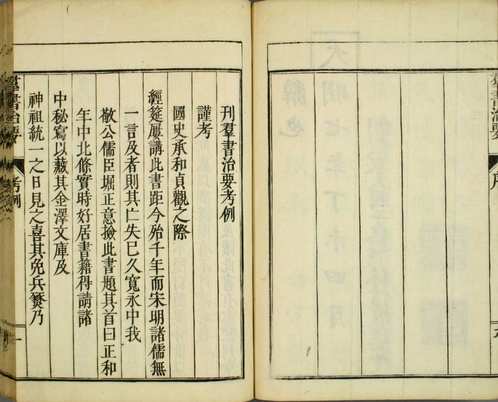 刊羣書治要考例
謹考
國史承和貞觀之際
經筵屢講此書距今殆千年而宋明諸儒無
一言及者則其亡失已久寬永中我
敬公儒臣堀正意撿此書題其首曰正和
年中北條實時好居書籍得請諸
中秘寫以藏其金澤文庫及
神祖統一之日見之喜其免兵燹乃
羣書治要
考例
一